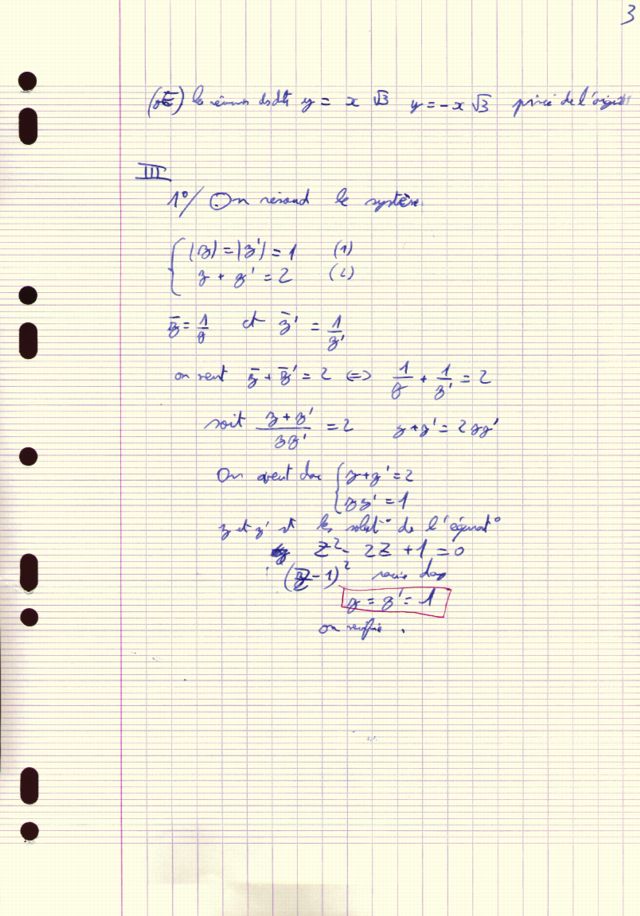 3
la réunion y = x √3 y = -x √3 privée de l'origine
III
1°/ On résoud le système
{ |z| = |z'| = 1 (1)
z + z' = 2 (2)
z̄ = 1/z et z̄' = 1/z'
on veut z̄ + z̄' = 2 <=> 1/z + 1/z' = 2
soit (z + z')/(zz') = 2 z + z' = 2zz'
On veut donc { z + z' = 2
zz' = 1
z et z' st les solut° de l'équat°
Z² - 2Z + 1 = 0
(Z - 1)²
z = z' = 1
on vérifie.